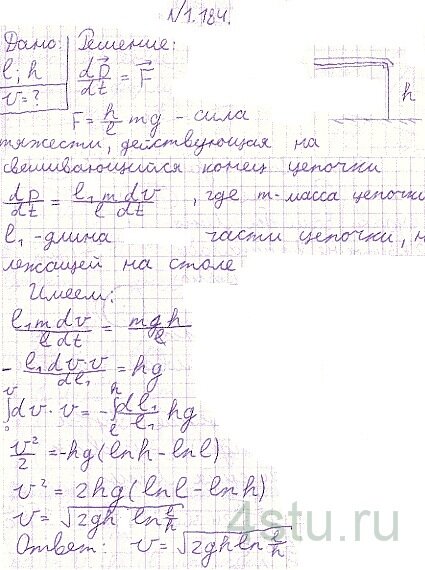 N 1.184.
Дано: Решение:
l; h
v = ?
dp⃗/dt = F⃗
F = h/l mg - сила
тяжести, действующая на
свешивающийся конец цепочки
dp/dt = l₁ m dv / l dt , где m - масса цепочки
l₁ - длина части цепочки, н
лежащей на столе
Имеем:
l₁ m dv / l dt = mgh / l
- l₁ dv · v / dl₁ = hg
∫₀ᵛ dv · v = - ∫ₗʰ dl₁/l₁ hg
v²/2 = -hg (ln h - ln l)
v² = 2hg (ln l - ln h)
v = √(2gh ln l/h)
Ответ: v = √(2gh ln l/h)
h
4stu.ru